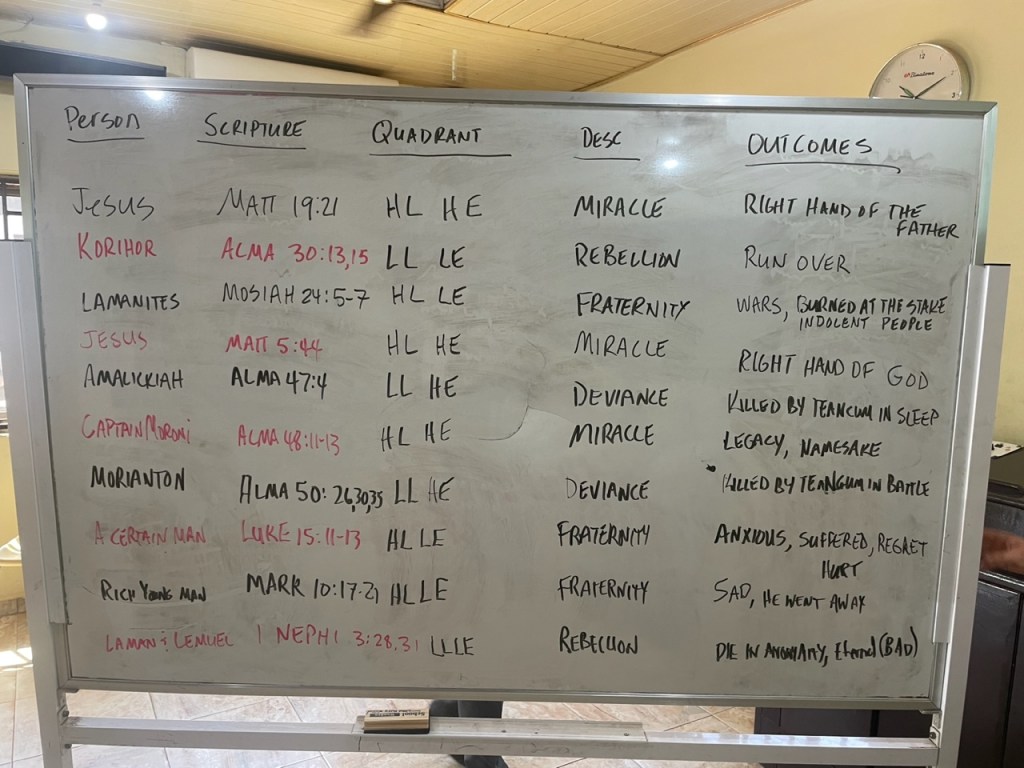 Person SCRIPTURE QUADRANT DESC OUTCOMES
Jesus MATT 19:21 HL HE MIRACLE RIGHT HAND OF THE
FATHER
KORIHOR ALMA 30:13,15 LL LE REBELLION RUN OVER
LAMANITES MOSIAH 24:5-7 HL LE FRATERNITY WARS, BURNED AT THE STAKE
INDOLENT PEOPLE
JESUS MATT 5:44 HL HE MIRACLE RIGHT HAND OF GOD
AMALICKIAH ALMA 47:4 LL HE DEVIANCE KILLED BY TEANCUM IN SLEEP
CAPTAIN MORONI ALMA 48:11-13 HL HE MIRACLE LEGACY, NAMESAKE
MORIANTON ALMA 50:26,30,35 LL HE DEVIANCE KILLED BY TEANCUM IN BATTLE
A CERTAIN MAN LUKE 15:11-13 HL LE FRATERNITY ANXIOUS, SUFFERED, REGRET
HURT
RICH YOUNG MAN MARK 10:17-21 HL LE FRATERNITY SAD, HE WENT AWAY
LAMAN & LEMUEL 1 NEPHI 3:28,31 LLLE REBELLION DIE IN ANONIMITY, Eternal (BAD)